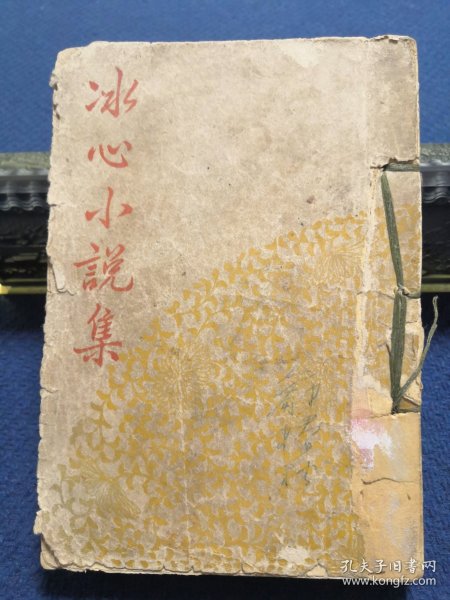 冰心小説集
孔夫子旧书网
www.kongfz.com